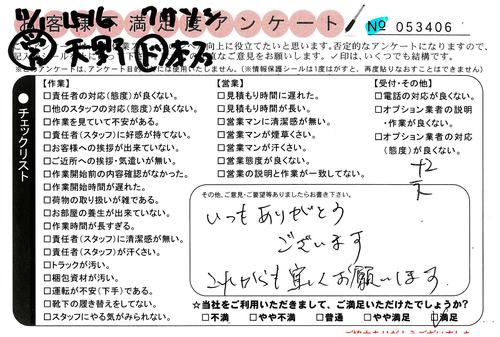 お客様不満足度アンケート
No 053406
向上に役立てたいと思います。否定的なアンケートになりますので、
直なご意見をお願いします。✓印は、いくつでも結構です。
※このアンケートは、アンケート目的以外には使用いたしません。(※情報保護シールは1度はがすと、再度貼りなおすことはできません)
チェックリスト
【作業】
□責任者の対応(態度)が良くない。
□他のスタッフの対応(態度)が良くない。
□作業を見ていて不安がある。
□責任者(スタッフ)に好感が持てない。
□お客様への挨拶が出来ていない。
□ご近所への挨拶・気遣いが無い。
□作業開始前の内容確認がなかった。
□作業開始時間が遅れた。
□荷物の取り扱いが雑である。
□お部屋の養生が出来ていない。
□作業時間が長すぎる。
□責任者(スタッフ)に清潔感が無い。
□責任者(スタッフ)が汗くさい。
□トラックが汚い。
□梱包資材が汚い。
□運転が不安(下手)である。
□靴下の履き替えをしてない。
□スタッフにやる気がみられない。
【営業】
□見積もり時間に遅れた。
□見積もり時間が長い。
□営業マンに清潔感が無い。
□営業マンが煙草くさい。
□営業マンが汗くさい。
□営業態度が良くない。
□営業の説明と作業が一致してない。
【受付・その他】
□電話の対応が良くない。
□オプション業者の説明
・作業が良くない。
□オプション業者の対応
(態度)が良くない。
その他、ご意見・ご要望等ありましたらお書き下さい。
いつもありがとう
ございます
これからも宜しくお願いします
☆当社をご利用いただきまして、ご満足いただけたでしょうか?
□不満 □やや不満 □普通 □やや満足 □満足
ご協力ありがとうございました